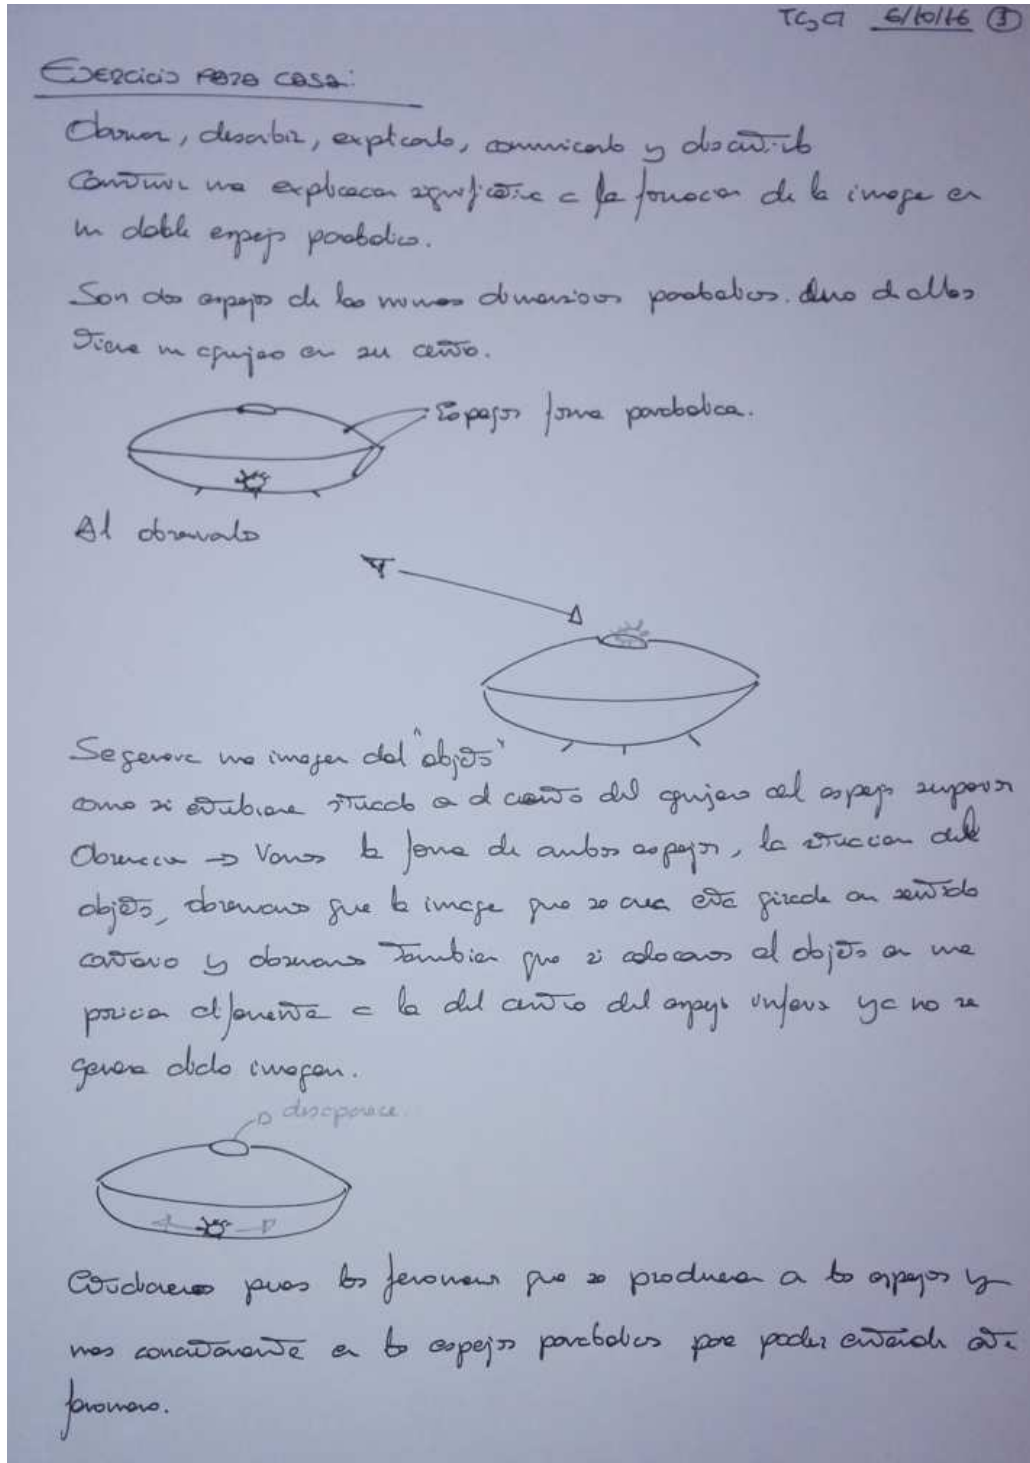 6/10/16 ①
Ejercicio para casa:
Observar, describir, explicarlo, comunicarlo y discutirlo
Construir una explicacion significativa a la formacion de la imagen en
un doble espejo parabolico.
Son dos espejos de las mismas dimensiones parabolicos. Uno de ellos
tiene un agujero en su centro.
Espejos forma parabolica.
Al observarlo
Se genera una imagen del "objeto"
como si estubiera situado en el centro del agujero del espejo superior
Observacion → Vemos la forma de ambos espejos, la situacion del
objeto, observamos que la imagen que se crea esta girada en sentido
contrario y observamos tambien que si colocamos el objeto en una
posicion diferente a la del centro del espejo inferior ya no se
genera dicha imagen.
desaparece.
Estudiaremos pues los fenomenos que se producen en los espejos y
mas concretamente en los espejos parabolicos para poder entender este
fenomeno.